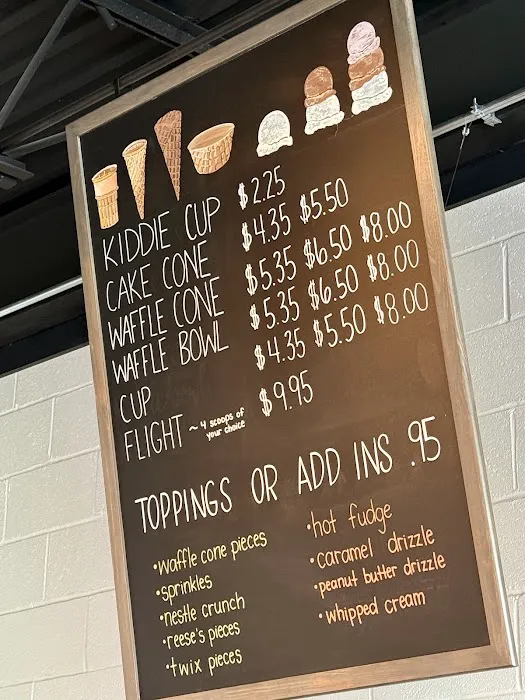 KIDDIE CUP $2.25
CAKE CONE $4.35 $5.50
WAFFLE CONE $5.35 $6.50 $8.00
WAFFLE BOWL $5.35 $6.50 $8.00
CUP $4.35 $5.50 $8.00
FLIGHT ~ 4 scoops of your choice $9.95
TOPPINGS OR ADD INS .95
•waffle cone pieces
•sprinkles
•nestle crunch
•reese's pieces
•twix pieces
•hot fudge
•caramel drizzle
•peanut butter drizzle
•whipped cream